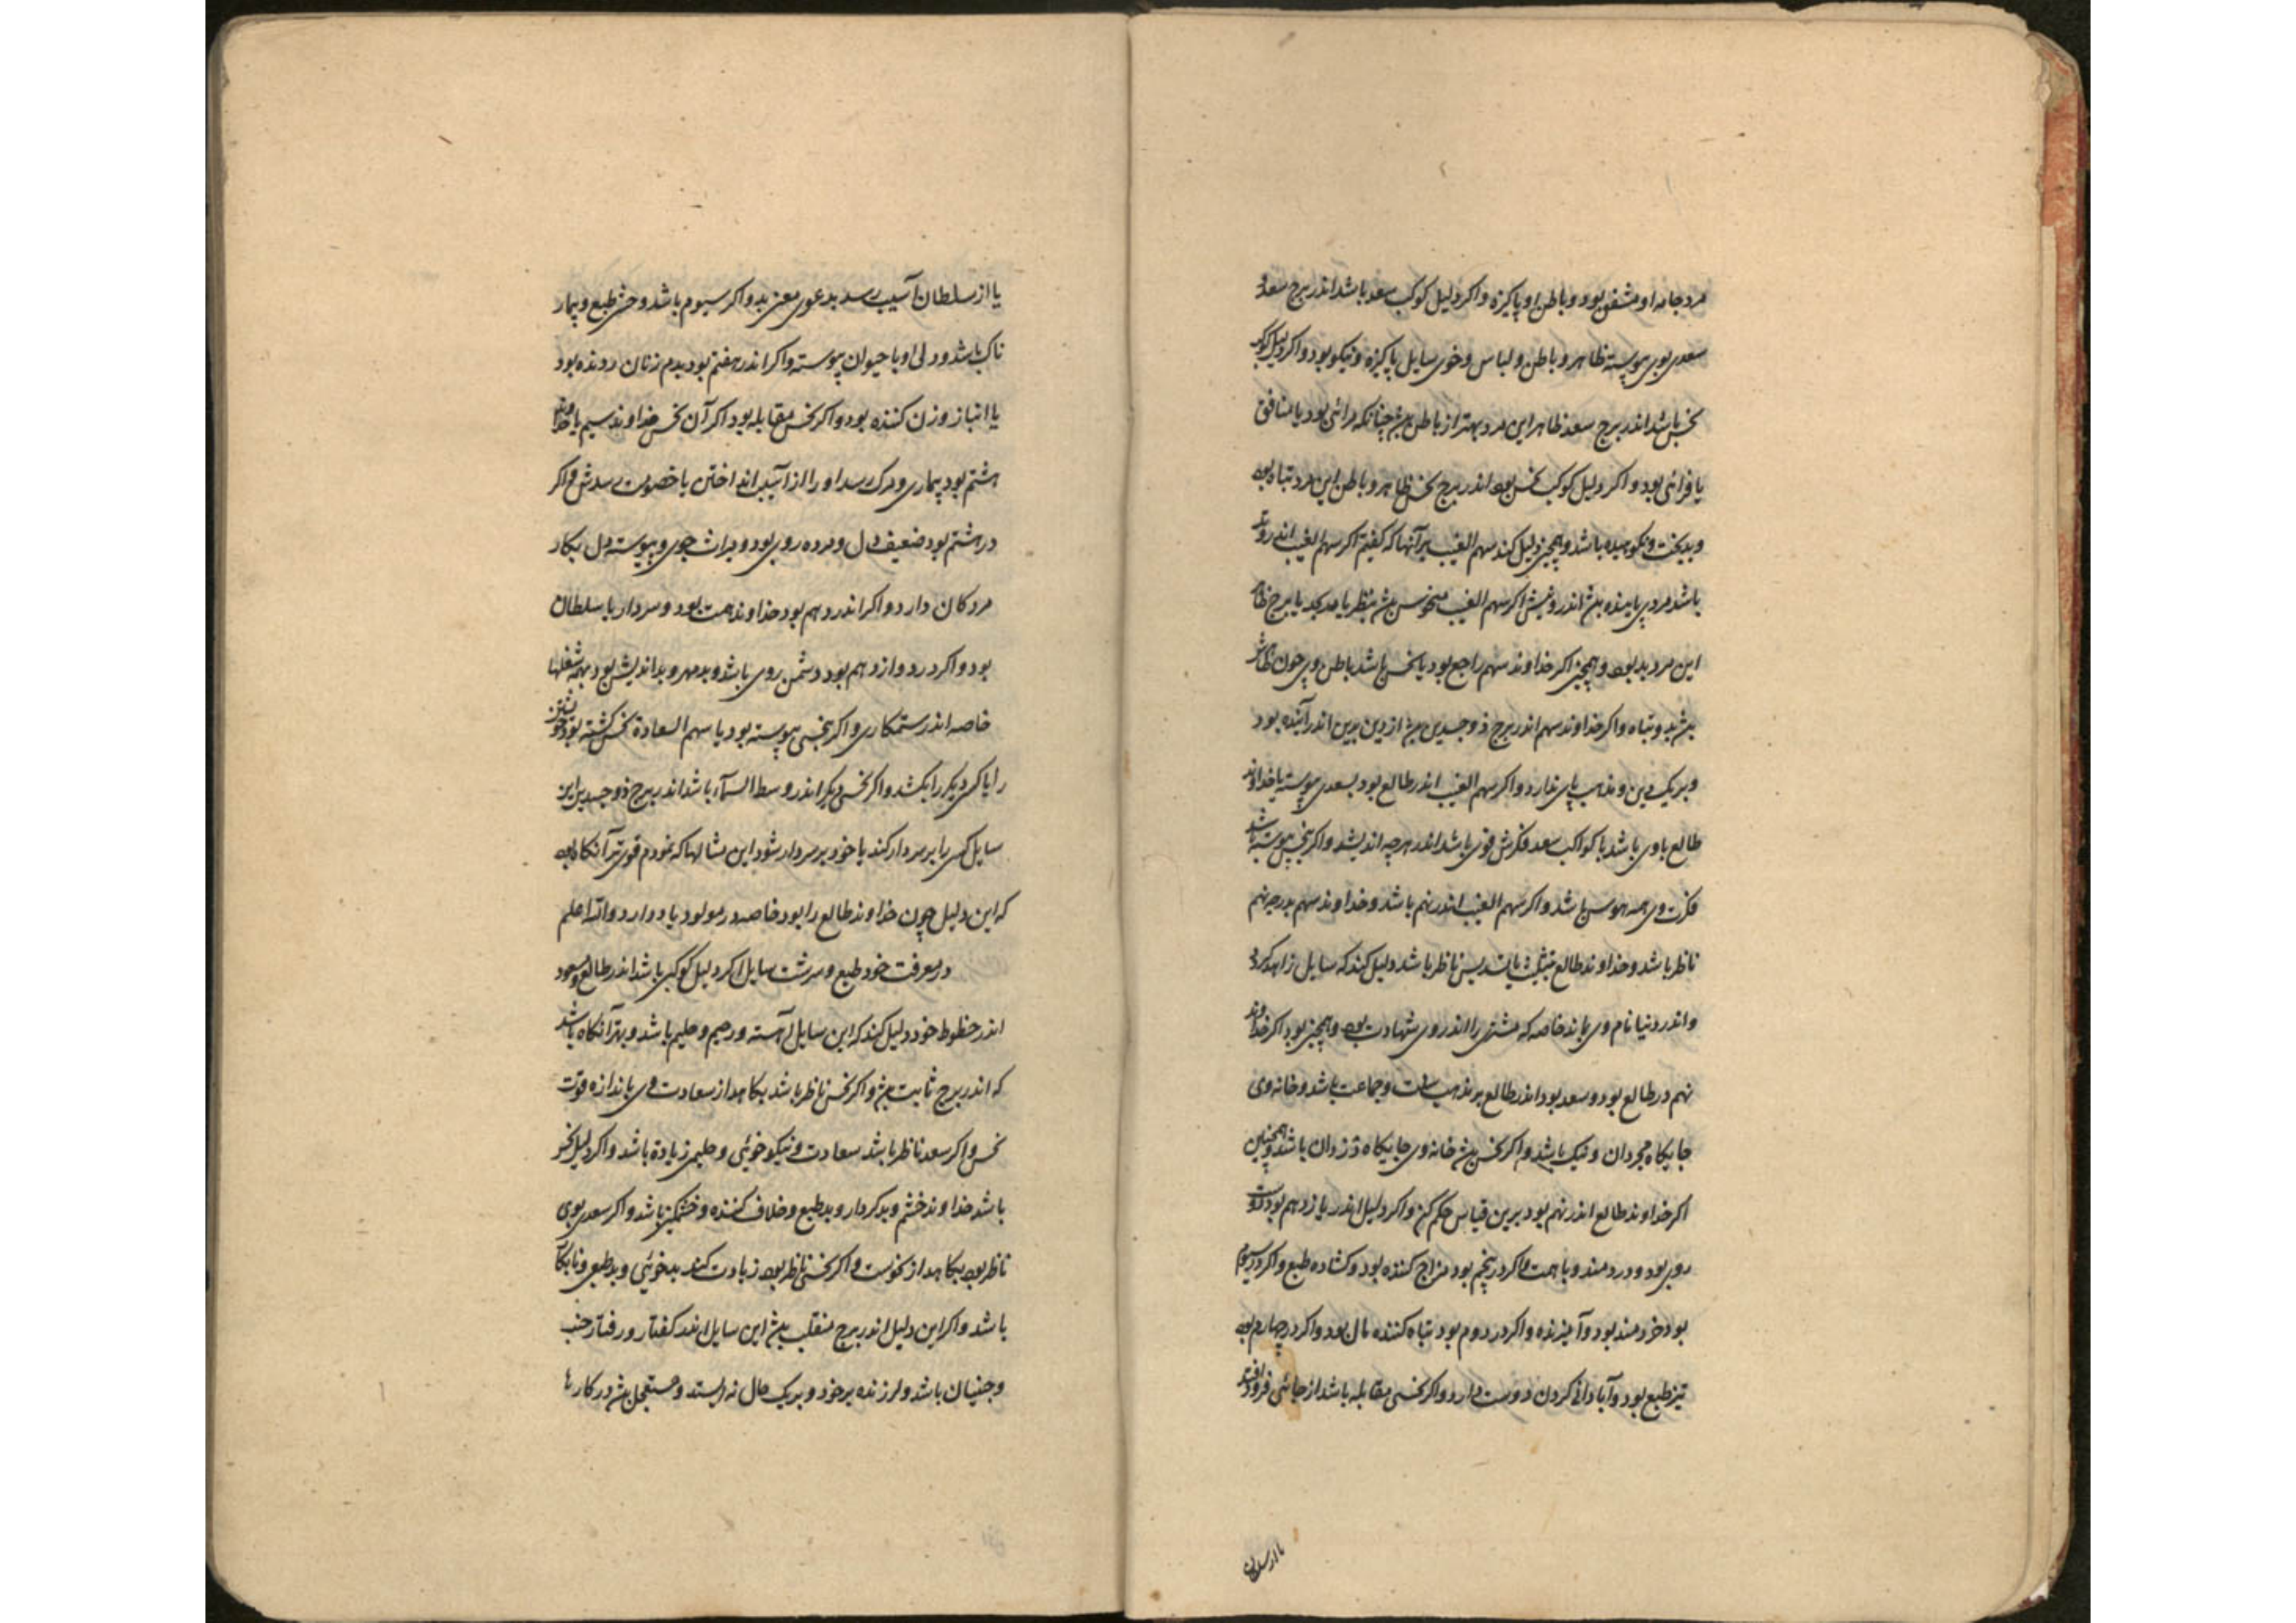 مرد جامه او مشفق بود و باطن او پاکیزه و اکر دلیل کوکب سعد باشد اندر برج سعد و
سعدی بوی پیوسته ظاهر و باطن و لباس و خوی سایل پاکیزه و نیکو بود و اکر دلیل کوکب
نحس باشد اندر برج سعد ظاهر این مرد بهتر از باطن بش چنانکه مرائی بود یا منافق
یا قرائی بود و اکر دلیل کوکب نحس بود اندر برج نحس ظاهر و باطن این مرد تباه بود
و بدبخت و نکوهیده باشد و همچنین دلیل کند سهم الغیب بر آنها که کفتم اکر سهم الغیب اندر وتد
باشد مردی پاینده بش اندر روشش اکر سهم الغیب منحوس بش بنظر یا مد کید یا برج ظاهر
این مرد بد بود و همچنین اکر خداوند سهم راجع بود یا نحس باشد باطن وی چون ظاهر
بش بد و تباه و اکر خداوند سهم اندر برج ذو جسدین بش از دین بدین اندر آینده بود
و بر یک دین و مذهب پای ندارد و اکر سهم الغیب اندر طالع بود بسعدی پیوسته یا خداوند
طالع با وی باشد یا کواکب سعد فکرش قوی باشد اندر هرچه اندیشد و اکر بنحس پیوسته باشد
فکرت وی همه هوس باشد و اکر سهم الغیب اندر نهم باشد و خداوند سهم بدرجه نهم
ناظر باشد و خداوند طالع بتثلیث یا تسدیس ناظر باشد دلیل کند که سایل زاهد کردد
و اندر دنیا نام وی بماند خاصه که مشتری را اندر وی شهادت بود و همچنین بود اکر خداوند
نهم در طالع بود و سعد بود اندر طالع بر مذهب سنت و جماعت باشد و خانه وی
جایکاه مجردان و نیک باشد و اکر نحس بش خانه وی جایکاه دزدان باشد و همچنین
اکر خداوند طالع اندر نهم بود برین قیاس حکم کن و اکر دلیل اندر یازدهم بود دوست
روی بود و دردمند و با همت و اکر در پنجم بود مزاح کننده بود و کشاده طبع و اکر در سیوم
بود خردمند بود و آمیزنده و اکر در دوم بود تباه کننده مال بود و اکر در چهارم بود
تیز طبع بود و آبادانی کردن دوست دارد و اکر نحسی مقابله باشد از جائی فرود افتد
یا از سلطان
یا از سلطان آسیب رسد بدعوی معزبد و اکر سیوم باشد وحش طبع و بیمار
ناک باشد و دل او با حیوان پیوسته و اکر اندر هفتم بود بدم زنان رونده بود
یا انباز و زن کننده بود و اکر نحس مقابله بود اکر آن نحس خداوند سیم یا خداوند
هشتم بود بیماری و مرک رسد او را از آسیب انداختن یا خصومت رسدش و اکر
در هشتم بود ضعیف دل و مرده روی بود و میراث جوی و پیوسته دل بکار
مردکان دارد و اکر اندر دهم بود خداوند همت بود و سردار یا سلطان
بود و اکر در دوازدهم بود دشمن روی باشد و بدمهر و بداندیش بود بهمه شغلها
خاصه اندر ستمکاری و اکر بنحسی پیوسته بود یا سهم السعادة نحس کشته بود خویشتن
را یا کسی دیکر را بکشد و اکر نحس دیکر اندر وسط السمآء باشد اندر برج ذو جسدین این
سایل کسی را بر سر دار کند یا خود بر سر دار شود این مثالها که نمودم قوی تر آنکاه بود
که این دلیل چون خداوند طالع را بود خاصه در مولود یاد دارد والله اعلم
در معرفت خود طبع و سرشت سایل اکر دلیل کوکبی باشد اندر طالع و سعود
اندر حظوط خود دلیل کند که این سایل آهسته و رحیم و حلیم باشد و بهتر آنکاه باشد
که اندر برج ثابت بش و اکر نحس ناظر باشد بکاهد از سعادت وی باندازه قوت
نحس و اکر سعد ناظر باشد سعادت و نیکو خوئی و حلیمی زیاده باشد و اکر دلیل نحس
باشد خداوند خشم و بدکردار و بدطبع و خلاف کننده و خشمکین باشد و اکر سعد بوی
ناظر بود بکاهد از نحوست و اکر نحس ناظر بود زیادت کند بدخوئی و بدطبعی و نابکار
باشد و اکر این دلیل اندر برج منقلب بش این سایل اندر کفتار و رفتار جنب
و جنبان باشد و لرزنده بر خود و بر یک حال نه ایستد و مستعجل بش در کارها